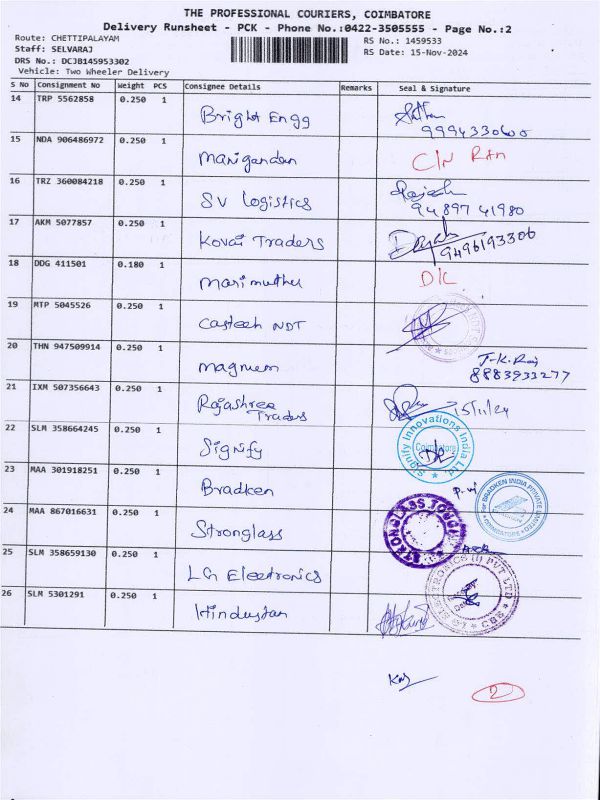 THE PROFESSIONAL COURIERS, COIMBATORE
Delivery Runsheet - PCK - Phone No.:0422-3505555 - Page No.:2
Route: CHETTIPALAYAM
Staff: SELVARAJ
DRS No.: DCJB145953302
Vehicle: Two Wheeler Delivery
RS No.: 1459533
RS Date: 15-Nov-2024
S No Consignment No Weight PCS Consignee Details Remarks Seal & Signature
14 TRP 5562858 0.250 1 Bright Engg 9994330600
15 NDA 906486972 0.250 1 Marigandan C/N RAM
16 TRZ 360084218 0.250 1 SV Logistics Rajesh 94897 41980
17 AKM 5077857 0.250 1 Kovai Traders 9496193306
18 DDG 411501 0.180 1 Mari muthu D/C
19 MTP 5045526 0.250 1 Casteeh NDT
20 THN 947509914 0.250 1 Magnum J-K. Raj 8883933277
21 IXM 507356643 0.250 1 Rajashree Traders 15/11/24
22 SLM 358664245 0.250 1 Signify Signify Innovations India Ltd. Coimbatore
23 MAA 301918251 0.250 1 Bradken For BRADKEN INDIA PRIVATE LIMITED COIMBATORE
24 MAA 867016631 0.250 1 Stronglass STRONGLASS TOUGH
25 SLM 358659130 0.250 1 LG Electronics LG ELECTRONICS (I) PVT LTD CBE
26 SLM 5301291 0.250 1 Hindustan
2